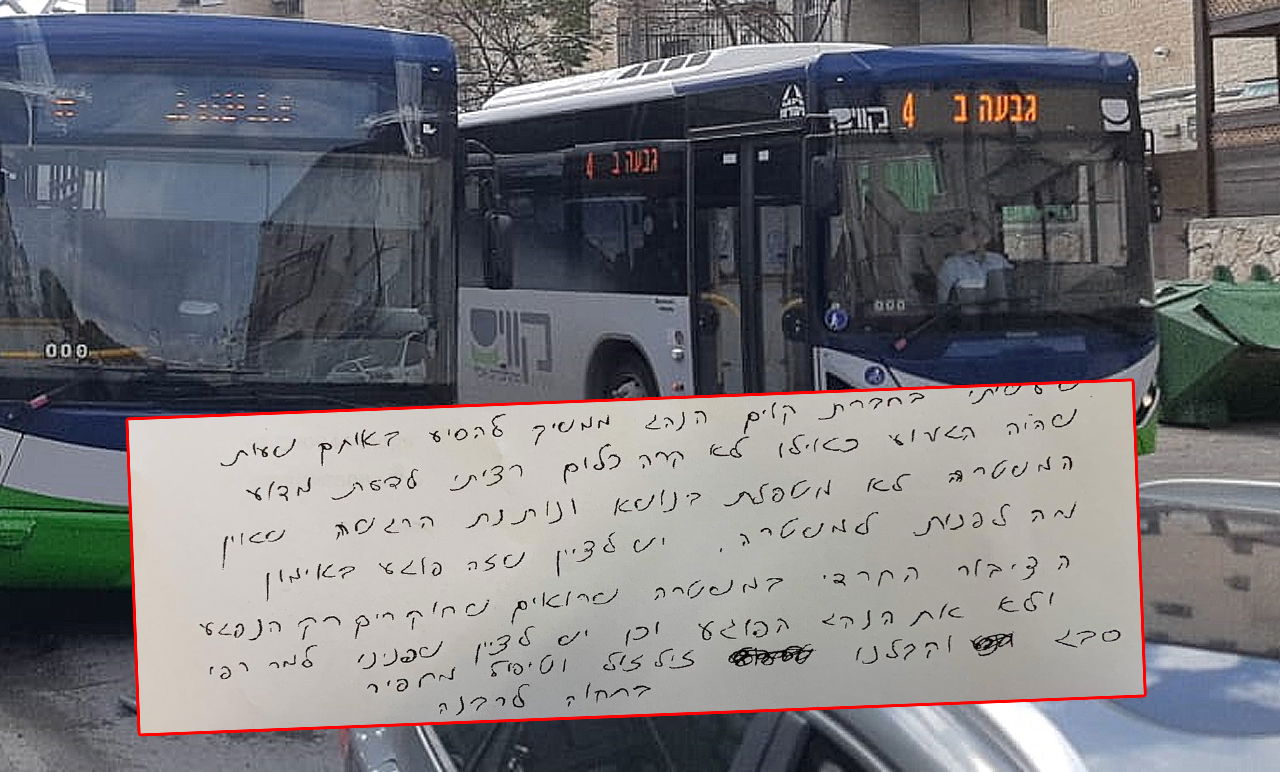 4 גבעה ב
4 גבעה ב
קווים
קווים
000
000
בחברת קוים הנהג ממשיך להסיע באותם שעות
שהיה הארוע כאילו לא קרה כלום רציתי לדעת מדוע
המשטרה לא מטפלת בנושא ונותנת הרגשה שאין
מה לפנות למשטרה. יש לציין שזה פוגע באימון
הציבור החרדי במשטרה שרואים שחוקרים רק הנפגע
ולא את הנהג הפוגע וכן יש לציין שפניני למר רפי
סבג וקבלנו זילזול וטיפול מחפיר
בתקוה להבנה